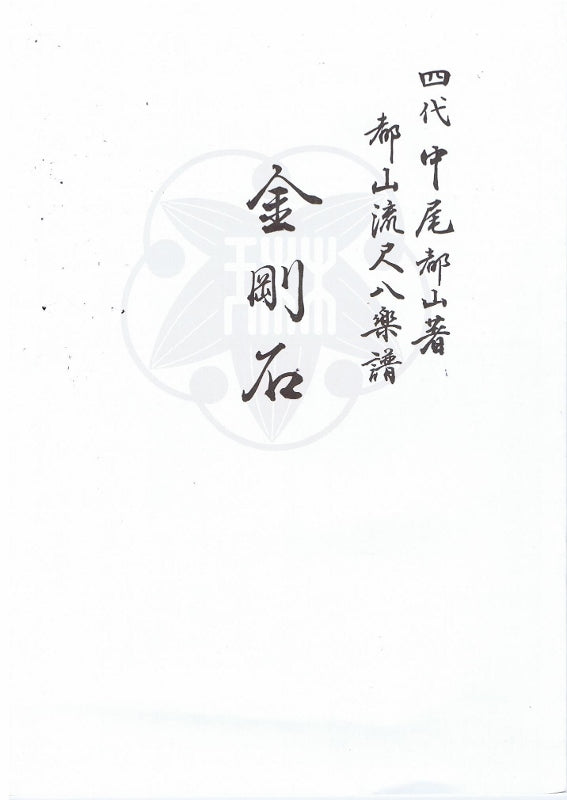 四代中尾都山著
都山流尺八楽譜
金剛石